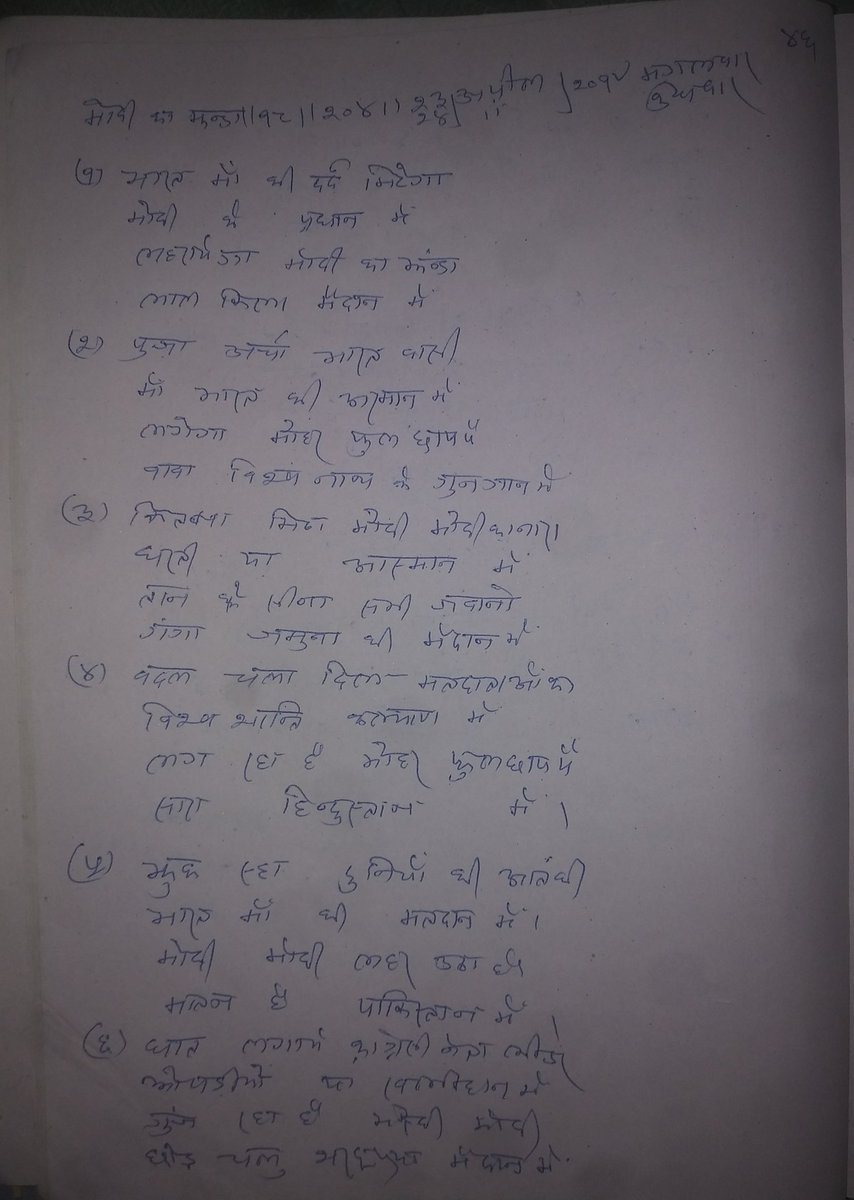 ४६
मोदी का झन्डा ।।१८।। ।।२०४।। २३/२४ अप्रील २०१४ मंगलवार
बुधवार
(१) भारत माँ की दर्द मिटेगा
मोदी के प्रधान में
लहरायेगा मोदी का झंन्डा
लाल किला मैदान में
(२) पुजा अर्चा भारत वासी
माँ भारत की अरमान में
लगेगा मोहर फुल छाप पै
बाबा विश्व नाथ के गुनगान में
(३) मोदी मोदी का नारा
धरती पर आस्मान में
तान के सीना सभी जवानो
गंगा जमुना की मैदान में
(४) बदल चला दिल मतदाताओं का
विश्व शान्ति कल्याण में
लग रहा है मोहर फुलछाप पै
सारा हिन्दुस्तान में ।
(५) झुक रहा दुनियाँ की आतंकी
भारत माँ की मतदान में ।
मोदी मोदी लहर उठा है
मातन है पाकिस्तान में ।
(६) घात लगाये कांग्रेसी नेता
पर में
गुंज रहा है मोदी मोदी
छोड़ चलु मैदान में